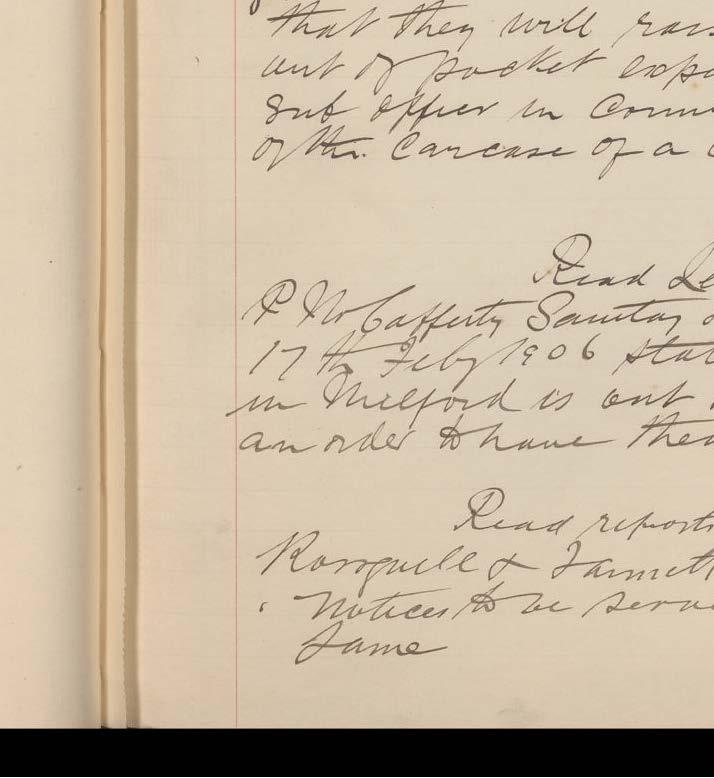 that they will
out of pocket
sub officer in
of the Carcase of a
Read
P McCafferty Sanitary
17th Feby 1906
in Milford is out
an order to have
Read reports
Rosguill &
Notices to be
Same